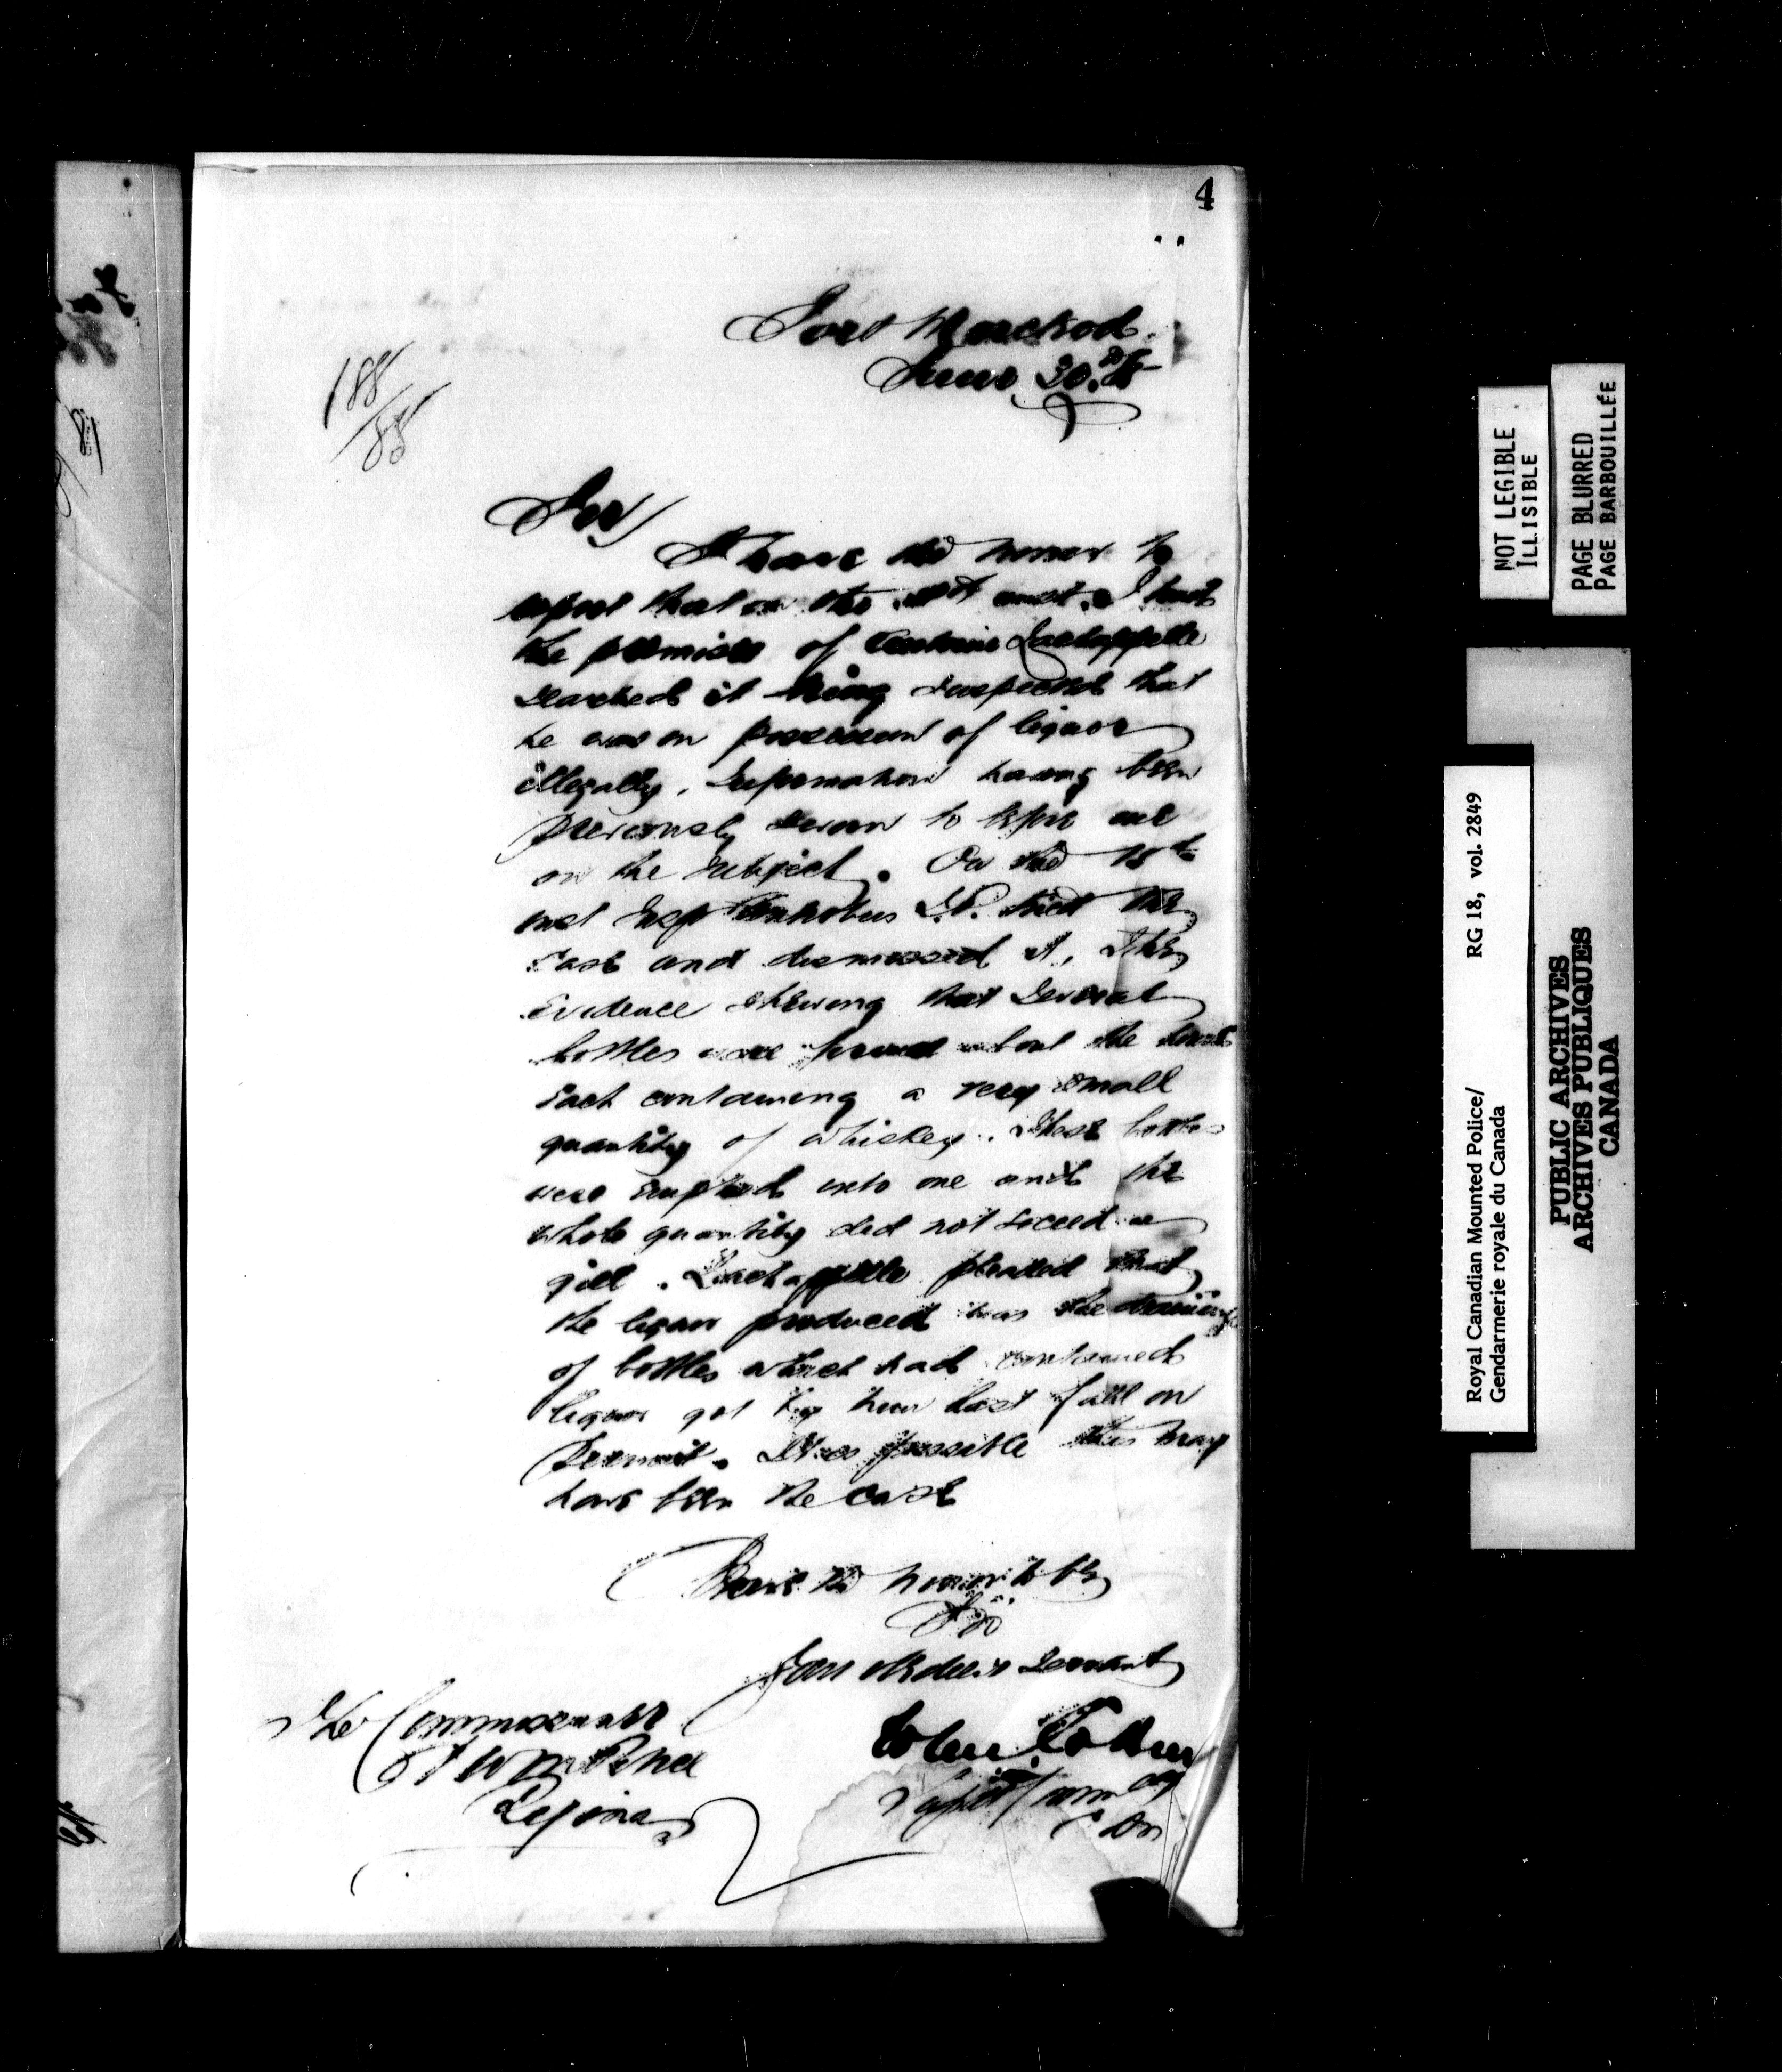 4
Fort Macleod
June 30th 85
188/85
Sir
I have the honor to
report that on the inst. I had
the premises of Antoine Lachappelle
searched it being suspected that
he was in possession of liquor
illegally. Information having been
previously sworn to before me
on the subject. On the 18th
inst Insp Antrobus J.P. tried the
case and dismissed it, the
evidence shewing that several
bottles were found about the house
each containing a very small
quantity of whiskey. These bottles
were emptied into one and the
whole quantity did not exceed a
gill. Lachappelle pleaded that
the liquor produced was the drainings
of bottles which had contained
liquor got by him last fall on
Permit. It is possible this may
have been the case
I have the honor to be
Sir
Your Obedient Servant
John Cotton
Supdt Comdg
C Dn
The Commissioner
N W M Police
Regina
NOT LEGIBLE
ILLISIBLE
PAGE BLURRED
PAGE BARBOUILLÉE
Royal Canadian Mounted Police/ RG 18, vol. 2849
Gendarmerie royale du Canada
PUBLIC ARCHIVES
ARCHIVES PUBLIQUES
CANADA